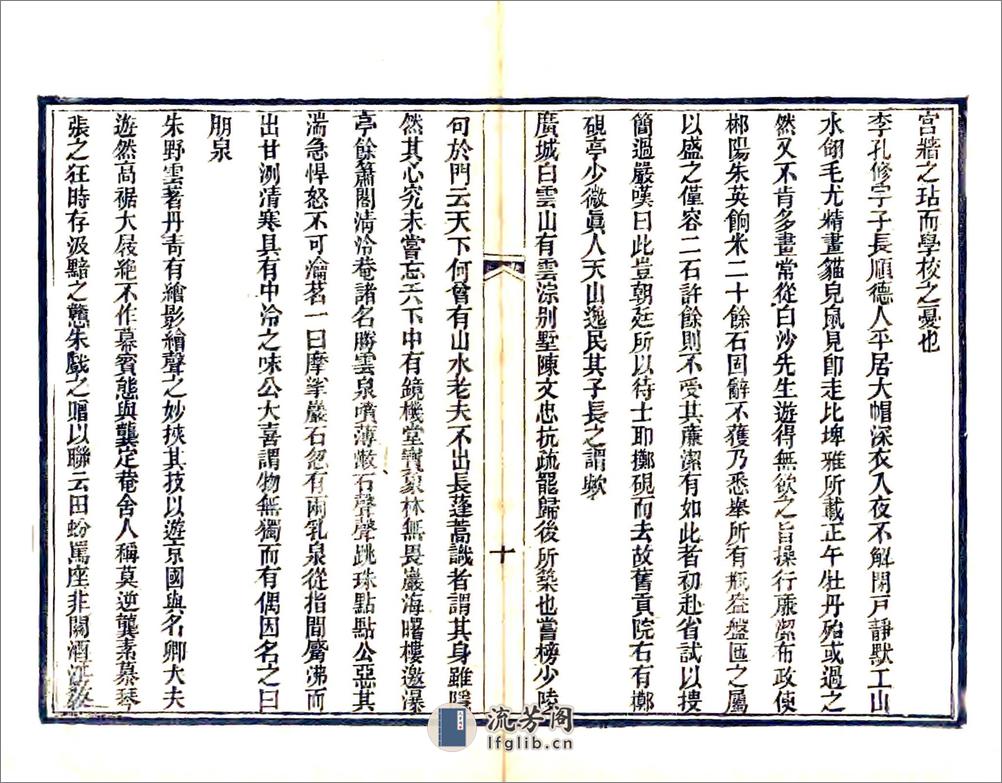 宮牆之玷而學校之憂也
李孔修字子長順德人平居大帽深衣入夜不解閉戸靜默工山
水翎毛尤精畫貓兒鼠見卽走比埤雅所載正午牡丹殆或過之
然又不肯多畫常從白沙先生遊得無欲之旨操行廉潔布政使
郴陽朱英餉米二十餘石固辭不獲乃悉舉所有瓶盎盤匜之屬
以盛之僅容二石許餘則不受其廉潔有如此者初赴省試以搜
簡過嚴嘆曰此豈朝廷所以待士耶擲硯而去故舊貢院右有擲
硯亭少微眞人天山逸民其子長之謂歟
廣城白雲山有雲淙别墅陳文忠抗疏罷歸後所築也嘗榜少陵
十
句於門云天下何曾有山水老夫不出長蓬蒿識者謂其身雖隱
然其心究未嘗忘天下中有鏡機堂寶象林無畏巖海曙樓邀瀑
亭餘簫閣淸泠菴諸名勝雲泉噴薄憋石聲聲跳珠點點公惡其
湍急悍怒不可瀹茗一日摩挲巖石忽有兩乳泉從指間觱沸而
出甘洌清寒具有中泠之味公大喜謂物無獨而有偶因名之曰
朋泉
朱野雲著丹靑有繪影繪聲之妙挾其技以遊京國與名卿大夫
遊然高裾大屐絶不作慕賓態與龔定菴舍人稱莫逆龔素慕琴
張之狂時存汲黯之戇朱戲之贈以聯云田蚡罵座非關酒江敩
流芳阁
lfglib.cn